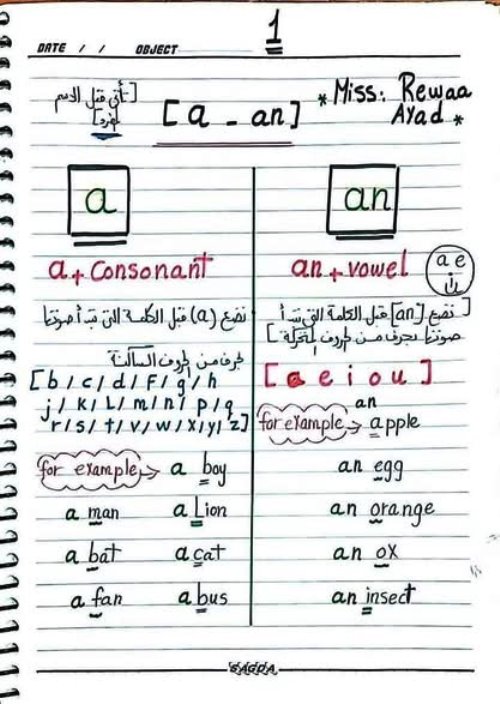 1
DATE / / OBJECT
[تأتي قبل الاسم المفرد]
[a - an]
* Miss: Rewaa Ayad *
a
a + Consonant
نضع (a) قبل الكلمة التي تبدأ صوتيا
بحرف من الحروف الساكنة
[b / c / d / F / g / h
j / k / L / m / n / p / q
r / s / t / v / w / x / y / z]
for example → a boy
a man a Lion
a bat a cat
a fan a bus
an
an + vowel
a e
[نضع [an] قبل الكلمة التي تبدأ
صوتيا بحرف من الحروف المتحركة]
[a e i o u]
for example → an apple
an egg
an orange
an ox
an insect
SAGDA